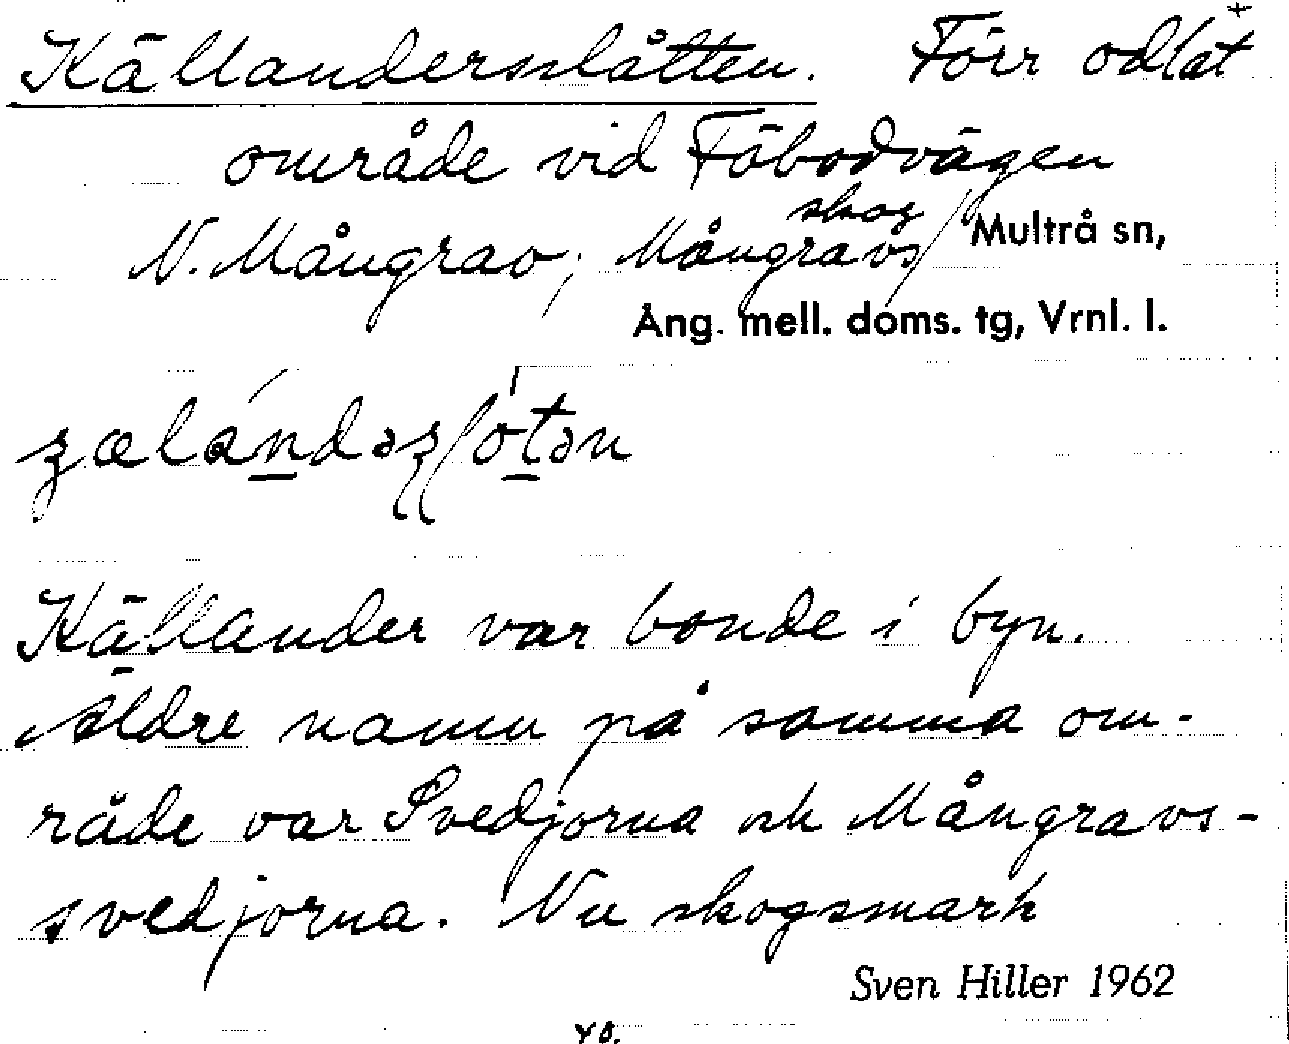 Källandersslåtten. Förr odlat
område vid Fäbodvägen
N. Mångrav; Mångravsskog Multrå sn,
Ång. mell. doms. tg, Vrnl. l.
Källander var bonde i byn.
Äldre namn på samma om-
råde var Svedjorna och Mångravs-
svedjorna. Nu skogsmark
Sven Hiller 1962